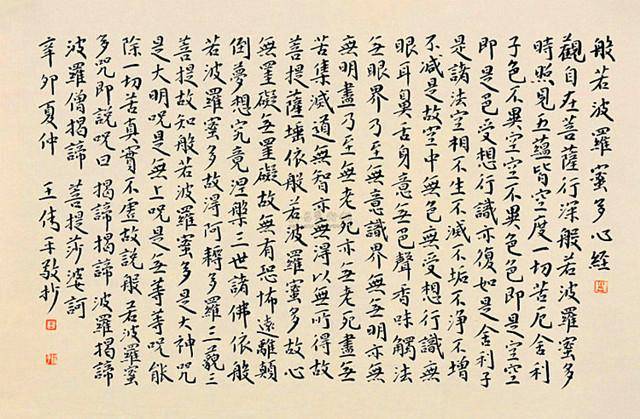 般若波羅蜜多心經
觀自在菩薩行深般若波羅蜜多
時照見五蘊皆空度一切苦厄舍利
子色不異空空不異色色即是空空
即是色受想行識亦復如是舍利子
是諸法空相不生不滅不垢不淨不增
不減是故空中無色無受想行識無
眼耳鼻舌身意無色聲香味觸法
無眼界乃至無意識界無無明亦無
無明盡乃至無老死亦無老死盡無
苦集滅道無智亦無得以無所得故
菩提薩埵依般若波羅蜜多故心
無罣礙無罣礙故無有恐怖遠離顛
倒夢想究竟涅槃三世諸佛依般
若波羅蜜多故得阿耨多羅三藐三
菩提故知般若波羅蜜多是大神咒
是大明咒是無上咒是無等等咒能
除一切苦真實不虛故說般若波羅蜜
多咒即說咒曰 揭諦揭諦 波羅揭諦
波羅僧揭諦 菩提莎婆訶
辛卯夏仲 王傳平敬抄